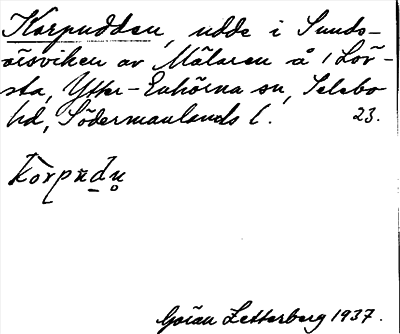 Korpudden, udde i Sunds-
örsviken av Mälaren å 1 Löv-
sta, Ytter-Enhörna sn, Selebo
hd, Södermanlands l. 23.
kòrpu̱dn̥
Göran Zetterberg 1937.